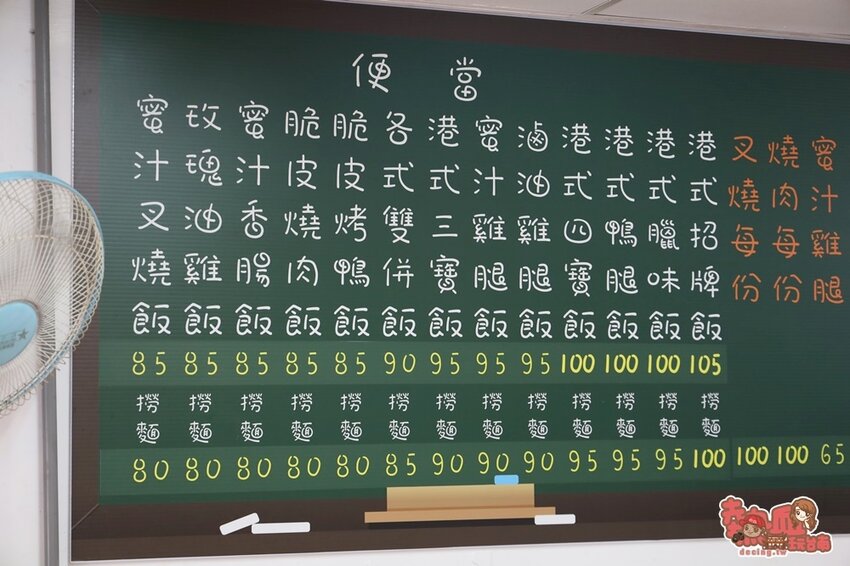 便當
蜜汁叉燒飯 85 撈麵 80
玫瑰油雞飯 85 撈麵 80
蜜汁香腸飯 85 撈麵 80
脆皮燒肉飯 85 撈麵 80
脆皮烤鴨飯 85 撈麵 80
各式雙併飯 90 撈麵 85
港式三寶飯 95 撈麵 90
蜜汁雞腿飯 95 撈麵 90
滷油雞腿飯 95 撈麵 90
港式四寶飯 100 撈麵 95
港式鴨腿飯 100 撈麵 95
港式臘味飯 100 撈麵 95
港式招牌飯 105 撈麵 100
叉燒每份 100
燒肉每份 100
蜜汁雞腿 65
decing.tw